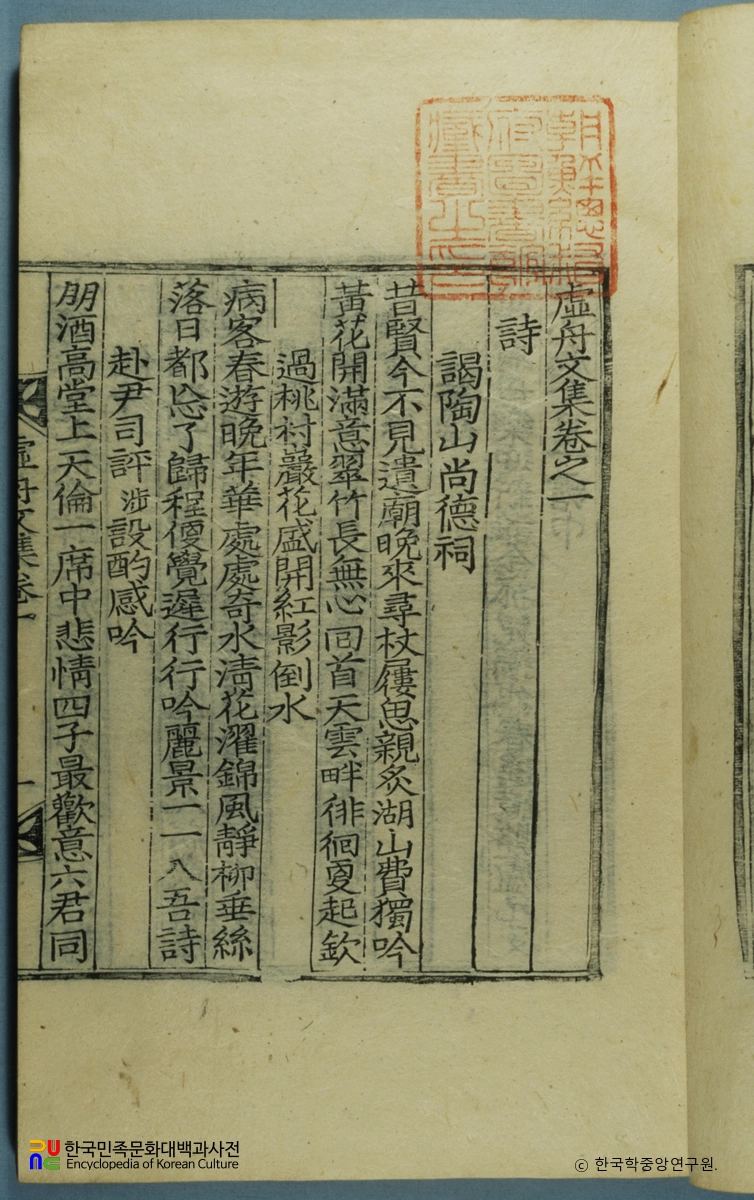 朝鮮總督
府圖書館
藏書之印
虛舟文集卷之一
詩
謁陶山尚德祠
昔賢今不見遺廟晚來尋杖屨思親炙湖山費獨吟
黃花開滿意翠竹長無心回首天雲畔徘徊更起欽
過桃村巖花盛開紅影倒水
病客春遊晚年華處處奇水淸花濯錦風靜柳垂絲
落日都忘了歸程便覺遲行行吟麗景一一入吾詩
赴尹司評涉設酌感吟
朋酒高堂上天倫一席中悲情四子最歡意六君同
虛舟文集卷一
一
한국민족문화대백과사전
Encyclopedia of Korean Culture
© 한국학중앙연구원.